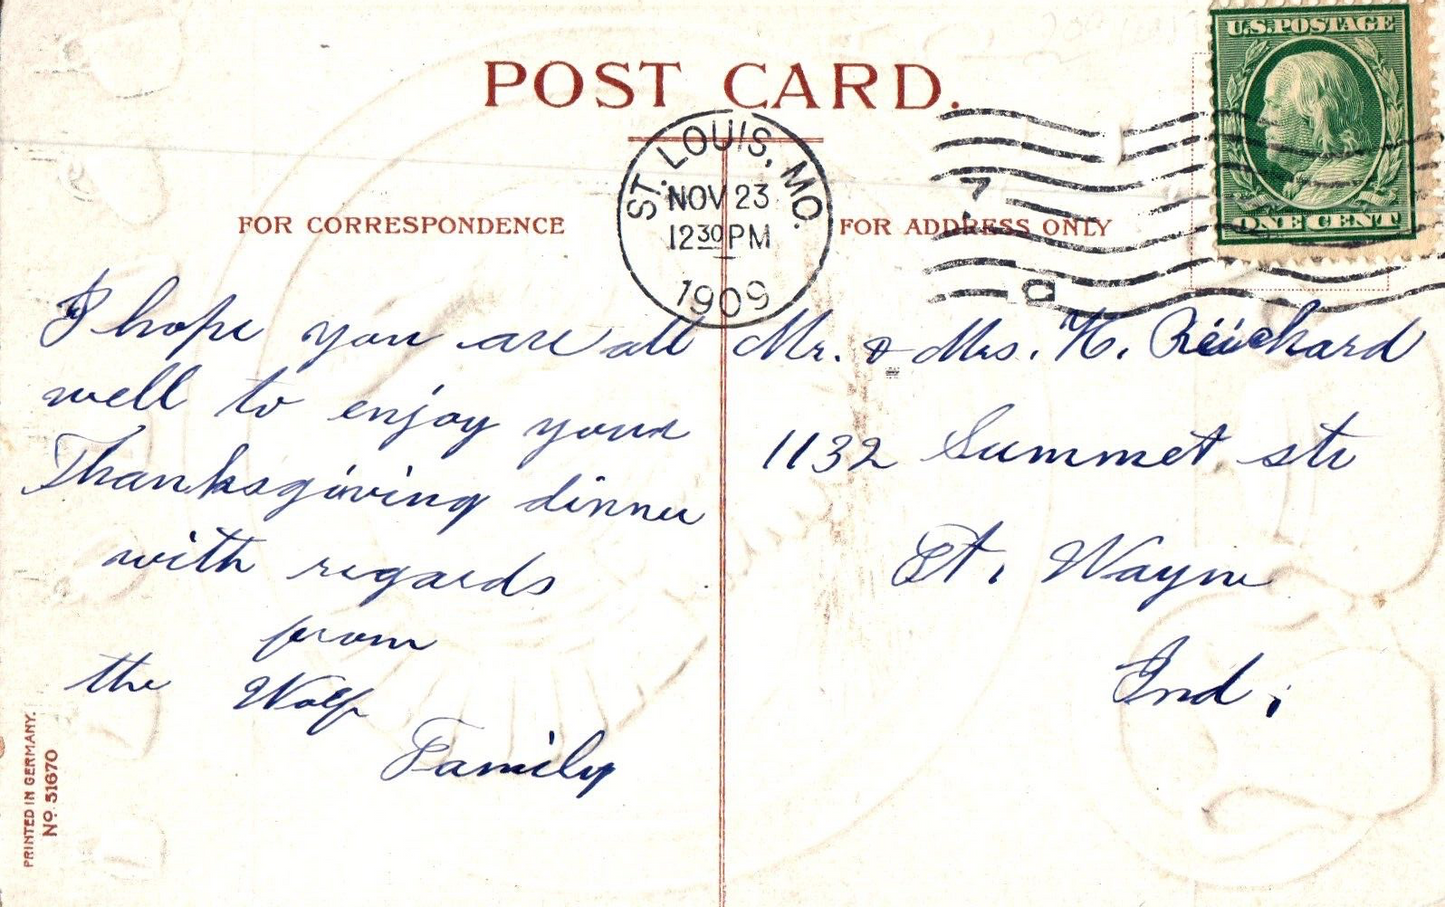 POST CARD.
U.S. POSTAGE
ONE CENT
ST. LOUIS, MO.
NOV 23
12 30 PM
1909
FOR CORRESPONDENCE
FOR ADDRESS ONLY
I hope you are all
well to enjoy your
Thanksgiving dinner
with regards
from
the Wolf
Family
Mr. & Mrs. H. Reichard
1132 Summet str
Ft. Wayne
Ind.
PRINTED IN GERMANY.
No. 51670